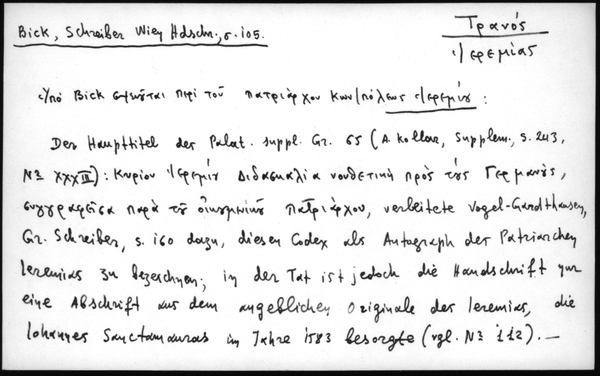 Bick, Schreiber Wien Hdschr., σ. 105.
Τρανός
Ἱερεμίας
Ὑπὸ Bick περὶ τοῦ πατριάρχου Κων/πόλεως Ἱερεμίου :
Der Haupttitel des Palat. suppl. Gr. 65 (A. Kollar, Supplem., S. 243,
№ XXXIII): Κυρίου Ἱερεμίου Διδασκαλία νουθετικὴ πρὸς τοὺς Γερμανούς,
συγγραφεῖσα παρὰ τοῦ οἰκουμενικοῦ πατριάρχου, verleitete Vogel-Gardthausen,
Gr. Schreiber, S. 160 dazu, diesen Codex als Autograph des Patriarchen
Ieremias zu bezeichnen; in der Tat ist jedoch die Handschrift nur
eine Abschrift aus dem angeblichen Originale des Ieremias, die
Iohannes Sanctamauras im Jahre 1583 besorgte (vgl. № 112). —